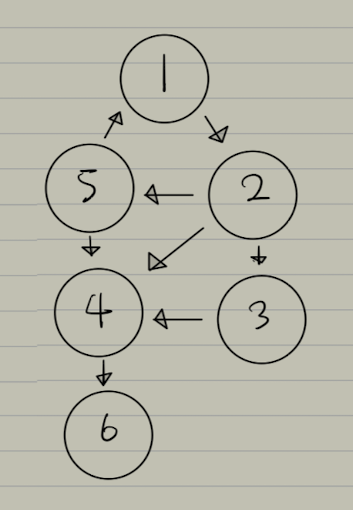 1
5 2
4 3
6